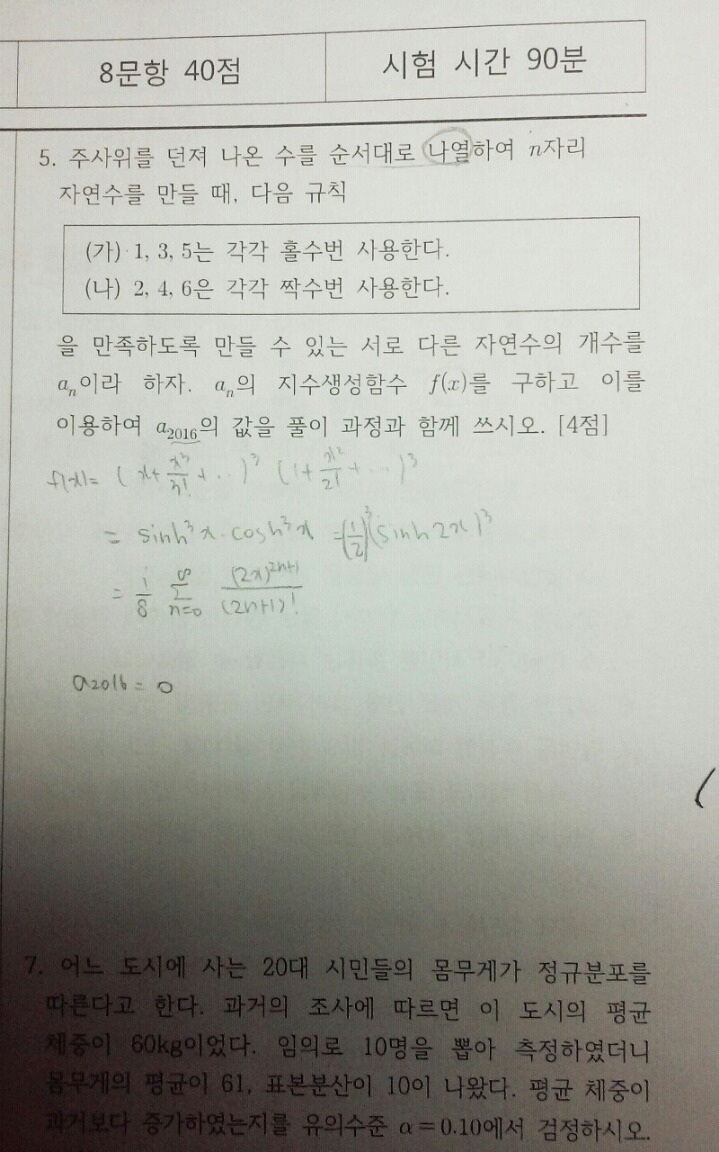 8문항 40점
시험 시간 90분
5. 주사위를 던져 나온 수를 순서대로 나열하여 n자리
자연수를 만들 때, 다음 규칙
(가) 1, 3, 5는 각각 홀수번 사용한다.
(나) 2, 4, 6은 각각 짝수번 사용한다.
을 만족하도록 만들 수 있는 서로 다른 자연수의 개수를
aₙ이라 하자. aₙ의 지수생성함수 f(x)를 구하고 이를
이용하여 a₂₀₁₆의 값을 풀이 과정과 함께 쓰시오. [4점]
f(x)= (x+x³/3!+..)³ (1+x²/2!+...)³
= sinh³x·cosh³x =(1/2)³(sinh2x)³
= 1/8 Σ(n=0, ∞) (2x)²ⁿ⁺¹/(2n+1)!
a₂₀₁₆ = 0
7. 어느 도시에 사는 20대 시민들의 몸무게가 정규분포를
따른다고 한다. 과거의 조사에 따르면 이 도시의 평균
체중이 60kg이었다. 임의로 10명을 뽑아 측정하였더니
몸무게의 평균이 61, 표본분산이 10이 나왔다. 평균 체중이
과거보다 증가하였는지를 유의수준 α=0.10에서 검정하시오.